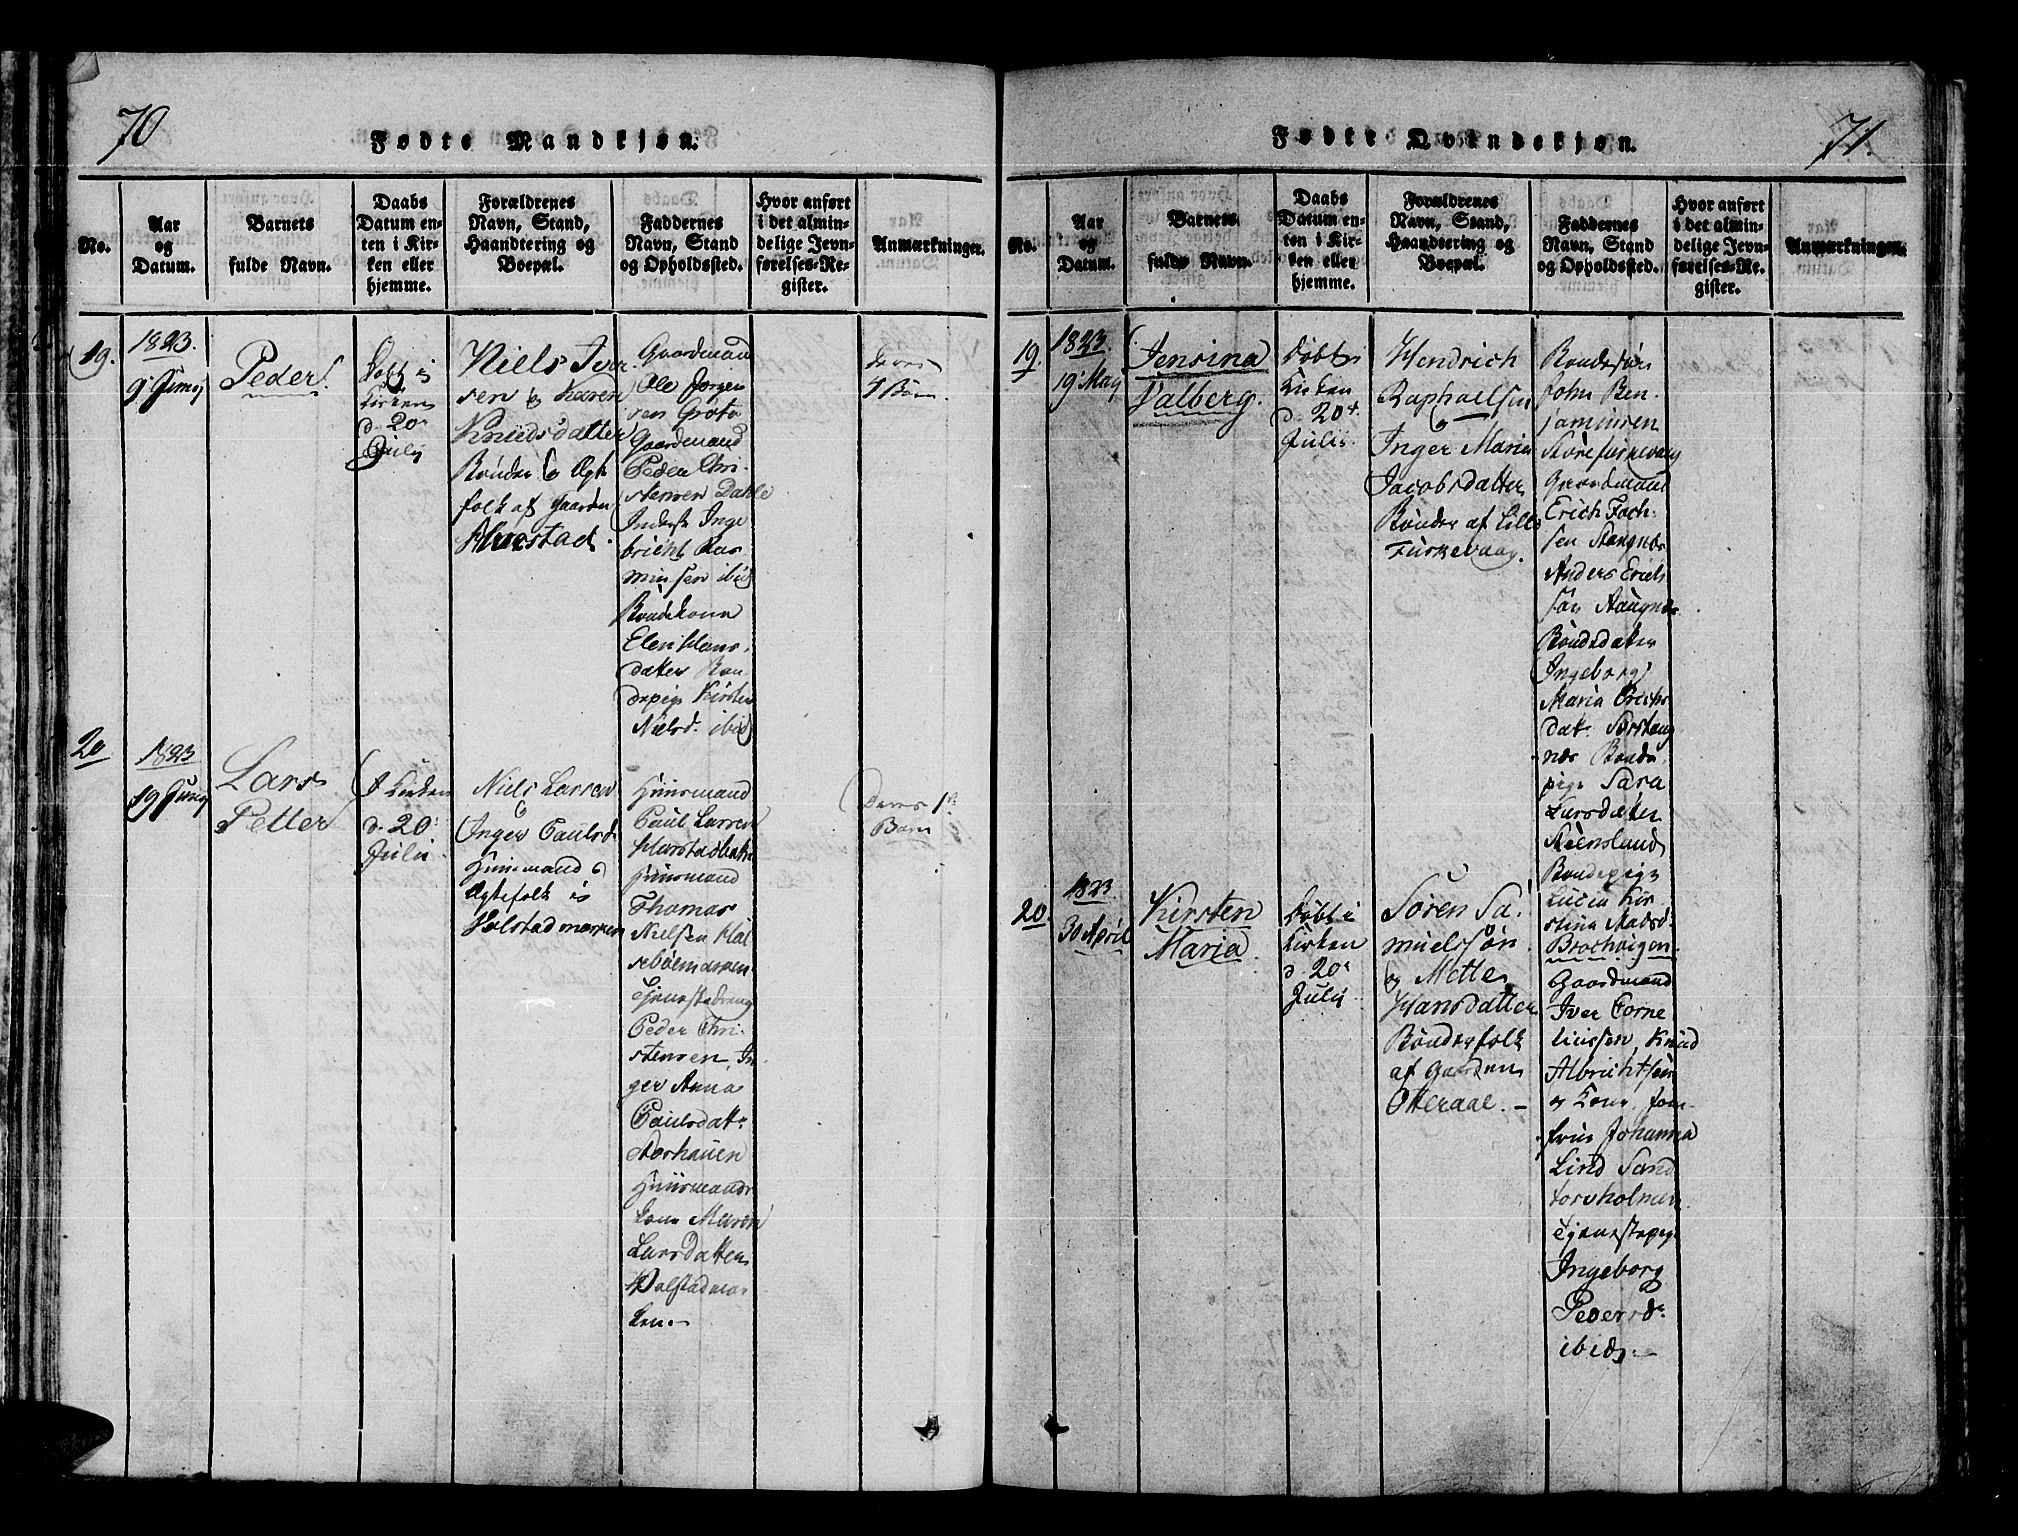 70
Fødte Mandkjøn.
No.
Aar
og
Datum.
Barnets
fulde Navn.
Daabs
Datum en-
ten i Kir-
ken eller
hjemme.
Forældrenes
Navn, Stand,
Haandtering og
Boepæl.
Faddernes
Navn, Stand
og Opholdssted.
Hvor anført
i det almin-
delige Jevn-
førelses-Re-
gister.
Anmærkninger.
19.
1823.
9 Junij
Peder.
Døbt i
Kirken
d. 20
July
Niels Iver
sen og Karen
Knudsdatter
Bønder og Ægt
folk af Gaarden
Gaardmand
Ole Jørgen
sen
Gaardmand
Peder Chri-
stensen Dahle
Inderst Inge
bricht Ras
minsen ibid
Bondekone
Elen Hans
datter Bon
depige Kirsten
Nielsd. ibid
Deres
4 Børn
20
1823
19 Junij
Lars
Petter
I Kirken
d. 20
Julii
Niels Larsen
og
Inger Paulsd.
Huusmand og
Ægtefolk i
Huusmand
Paul Larsen
Huusmand
Thomas
Nielsen
Tjenestedreng
Peder Chri-
stensen, In
ger Anna
Paulsdat.
Huusmands
kone Maren
Larsdatter
ken.-
Deres 1te
Barn
71.
Fødte Qvindekjøn.
No.
Aar
og
Datum.
Barnets
fulde Navn.
Daabs
Datum en-
ten i Kir-
ken eller
hjemme.
Forældrenes
Navn, Stand,
Haandtering og
Boepæl.
Faddernes
Navn, Stand
og Opholdssted.
Hvor anført
i det almin-
delige Jevn-
førelses-Re-
gister.
Anmærkningen.
19.
1823.
19 May
Jensina
Valberg.
Døbt i
Kirken
d. 20
Julii.
Hendrich
Raphaelsen
og
Inger Maria
Jacobsdatter
Bønder af Lille
Furkevaag.
John Ben-
jaminsen
Store Furkevaag
Gaardmand
Erich Zach-
sen
Anders Erich
søn
Bondedatter
Ingeborg
Maria Erichs
dat.
næs Bonde
pige Sara
Larsdatter
Steensland
Bondepige
Lucia Kir
stina Madsd.
20.
1823.
30 April
Kirsten
Maria.
Døbt i
Kirken
d. 20
Julij
Søren Sa-
muelssøn
og Mette
Hansdatter
Bønderfolk
af Gaarden
Otteraae. -
Gaardmand
Iver Corne
liussen, Knud
Albrichtsen
og Kone, Jom-
fru Johanna
Lind Sand
torvholmen
Tjenestepige
Ingeborg
Pedersd.
ibid. -